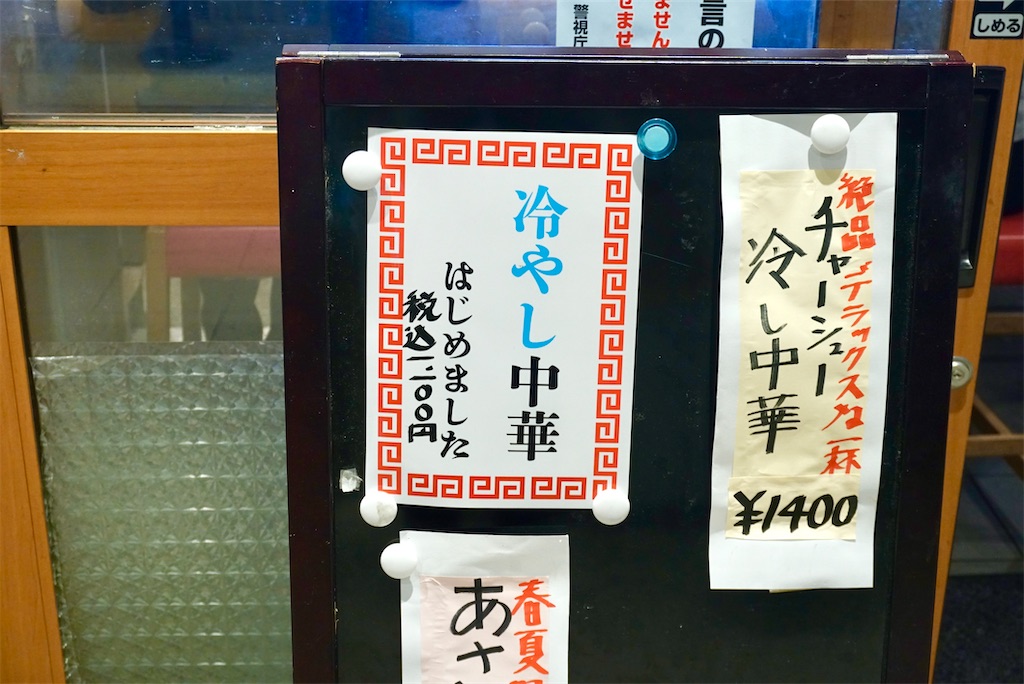 しめる
言の
ません
せませ
警視庁
冷やし中華
はじめました
税込一一〇〇円
絶品デラックスな一杯
チャーシュー
冷し中華
¥1400
春夏
あさ